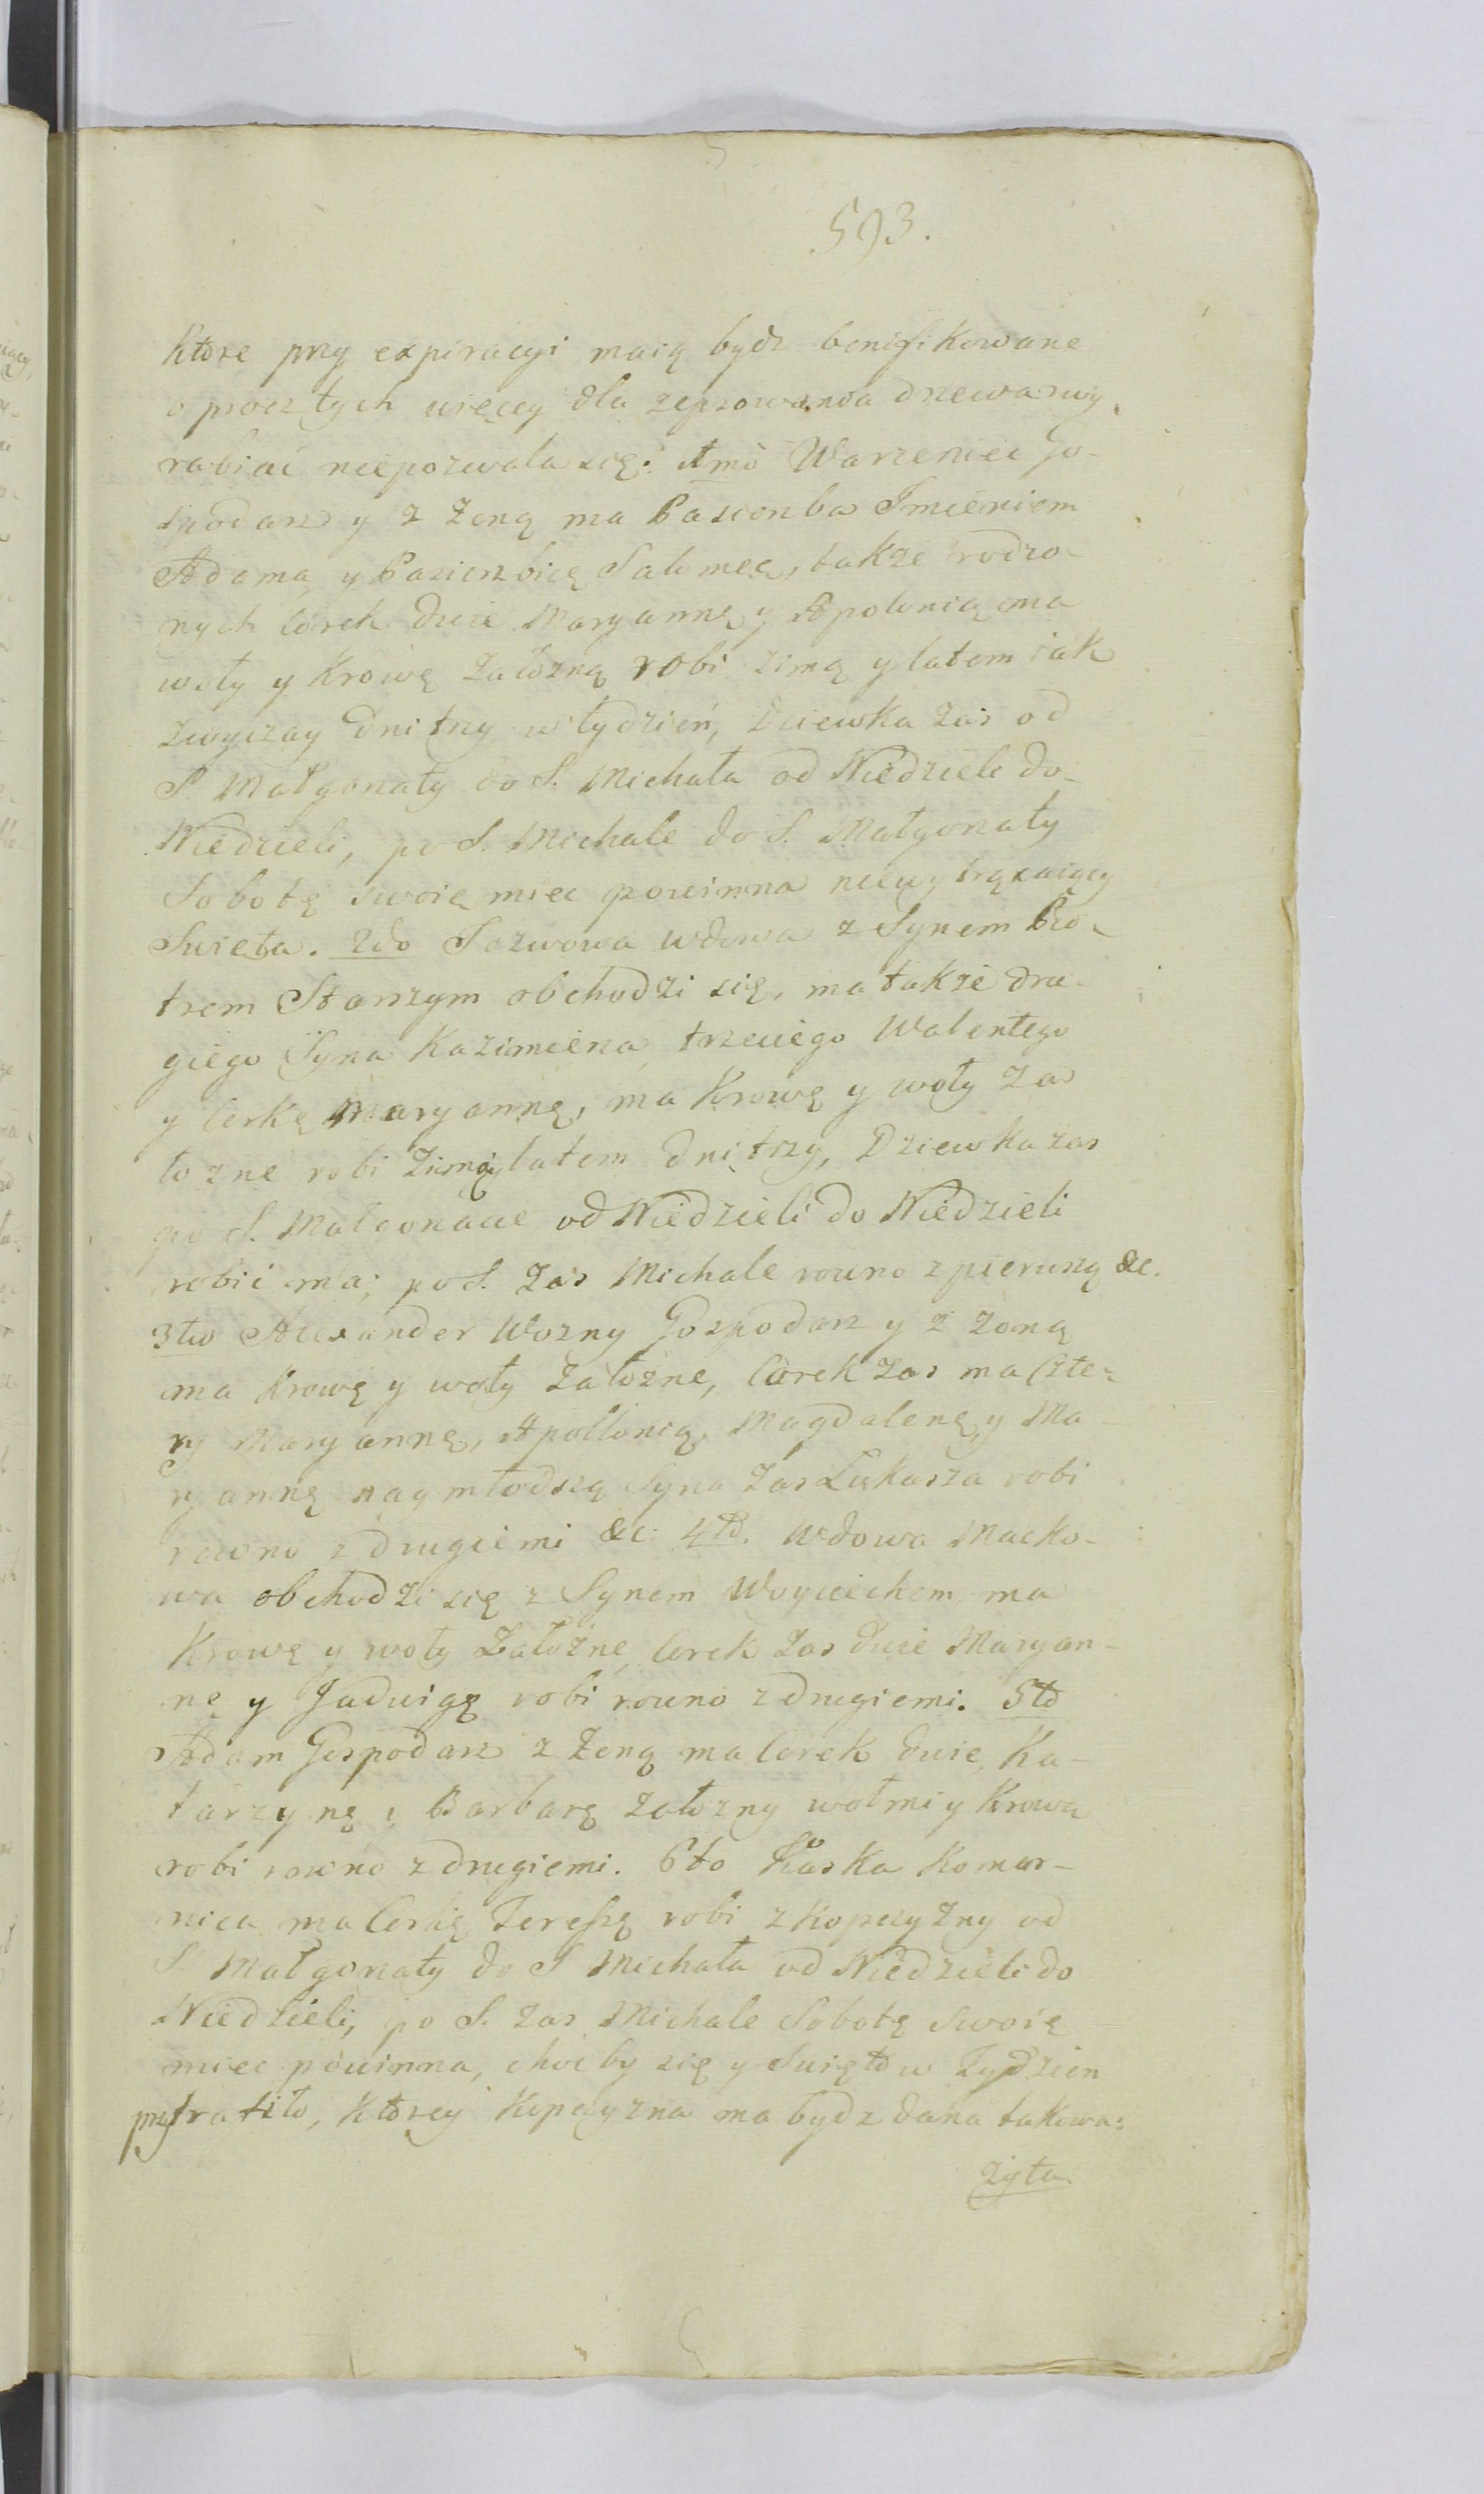 593.
ktore przy expiracyi maią bydz bonifikowane
oprocz tych więcey dla zepsowania drzewa wy-
rabiać niepozwala się: 1mò Warzeniec Go-
spodarz y z Zoną ma Pasierzba Imieniem
Adama y Pasierzbicę Salomeę, także rodzo-
nych Corek dwie Maryannę y Apolonią ma
woły y Krowę Załozną robi zimą y latem iak
zwyczay Dni trzy w tydzień, Dziewka zas od
S. Małgorzaty do S. Michała od Niedzieli do-
Niedzieli, po S. Michale do S. Małgorzaty
Sobotę swoię miec powinna niewytrącaiący
Swięta. 2do Sozwowa wdowa z Synem Pio-
trem Starszym obchodzi się, ma także dru-
giego Syna Kazimierza, trzeciego Walentego
y Corkę Maryannę, ma Krowę y woły Za
łozne robi Zimą y latem dni trzy, Dziewka zas
po S. Małgorzacie od Niedzieli do Niedzieli
robić ma; po S. Zas Michale rowno z pierwszą &c.
3tio Alexander Wozny Gospodarz y z Zoną
ma Krowę y woły Załozne, Corek Zas ma Czte-
ry Maryannę, Apollonią, Magdalenę, y Ma-
ryannę naymłodszą Syna Zas Łukasza robi
rowno z drugiemi &c: 4tò. Wdowa Macko-
wa obchodzi się z Synem Woyciechem, ma
Krowę y woły Załozne, Corek Zas dwie Maryan-
nę y Jadwigę robi rowno z drugiemi. 5tò
Adam Gospodarz z Zoną ma Corek dwie, Ka-
tarzynę y Barbarę załozny wołmi y Krową
robi rowno z drugiemi. 6to Kaska Komor-
nica ma Corkę Teressę robi z Kopczyzny od
S. Małgorzaty do S Michała od Niedzieli do
Niedzieli, po S. zas Michale Sobotę Swoię
miec powinna, choc by się y Swięto w Tydzien
przytrafiło, Ktorey Kopczyzna ma bydz dana takowa:
Zyta